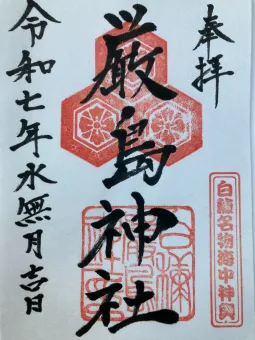 奉拝
厳島神社
白龍名物海中神輿
令和七年水無月吉日